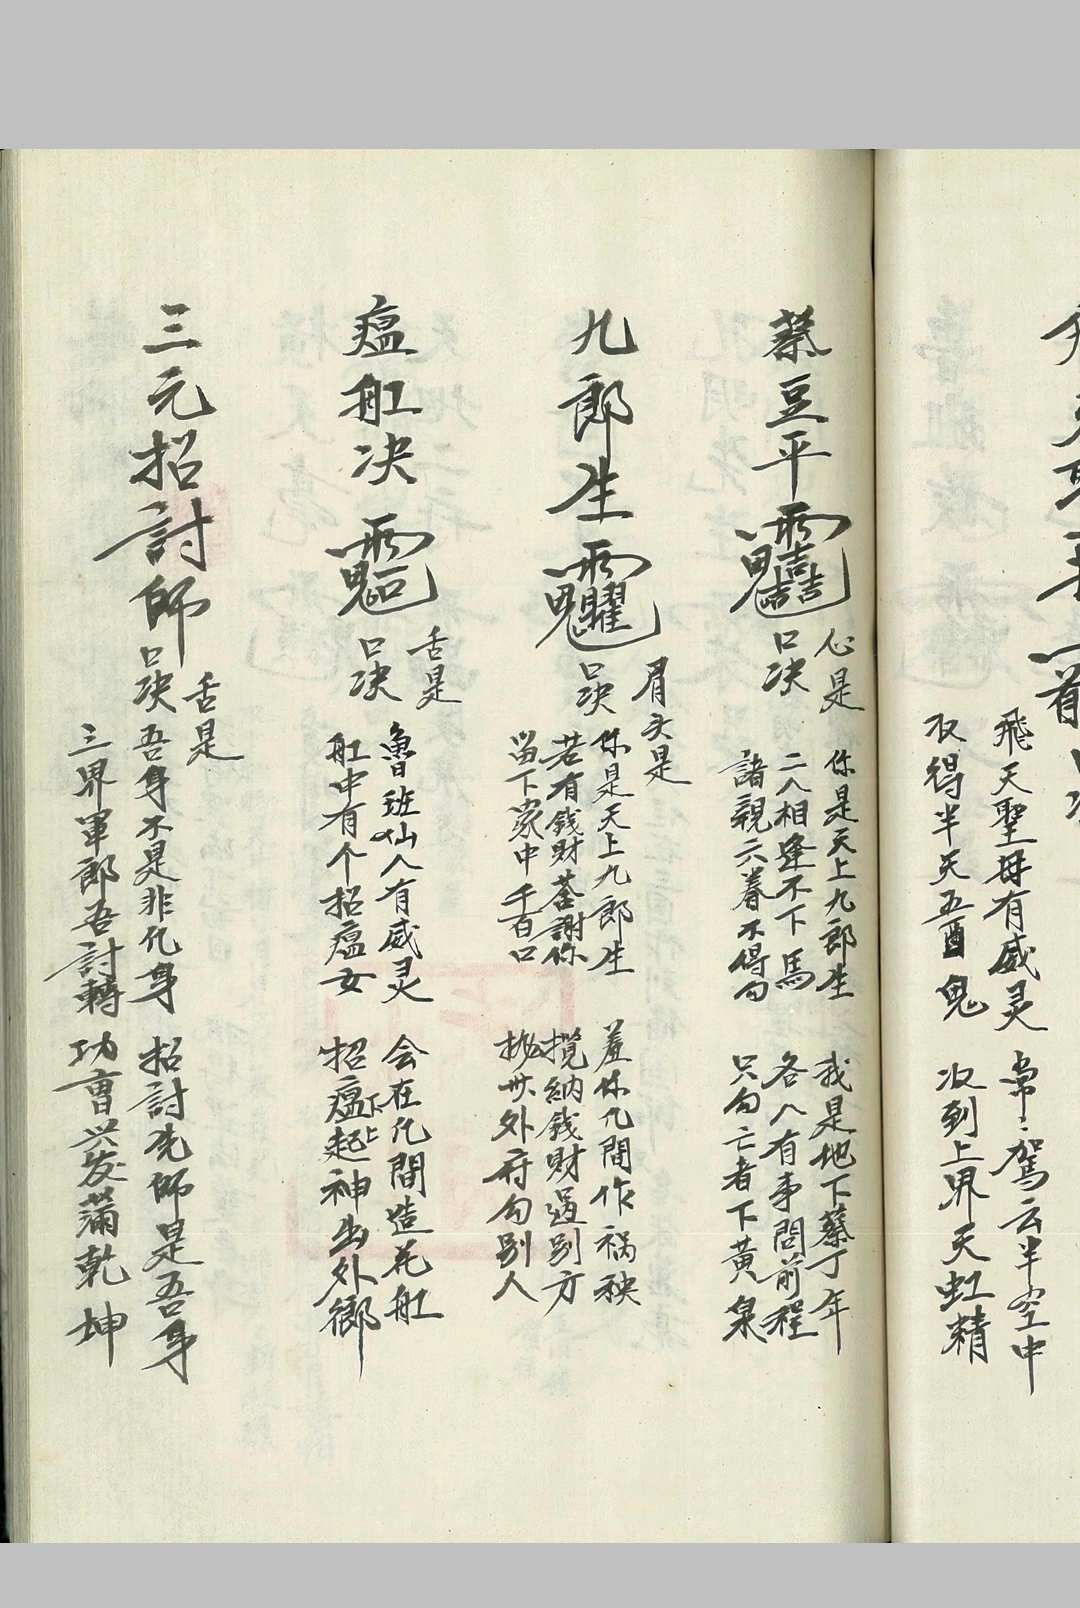 飛天聖母有威灵 常〻駕云半空中
收得半天五酉鬼 收到上界天虹精
蔡豆平
口决
心是
你是天上九郎生 我是地下蔡丁年
二人相逢不下馬 各人有事問前程
諸親六眷不得勾 只勾亡者下黃泉
九郎生
口决
眉头是
你是天上九郎生 羞你凡間作禍殃
若有钱財荅謝你 攬納錢財過別方
留下家中千百口 世外府勾别人
瘟舡决
口决
舌是
魯班仙人有威灵 会在凡間造花舡
舡中有个招瘟女 招瘟起神出外鄉
三元招討師
口决
舌是
吾身不是非凡身 招討先師是吾身
三界軍郎吾討轉 功曹兴发满乾坤